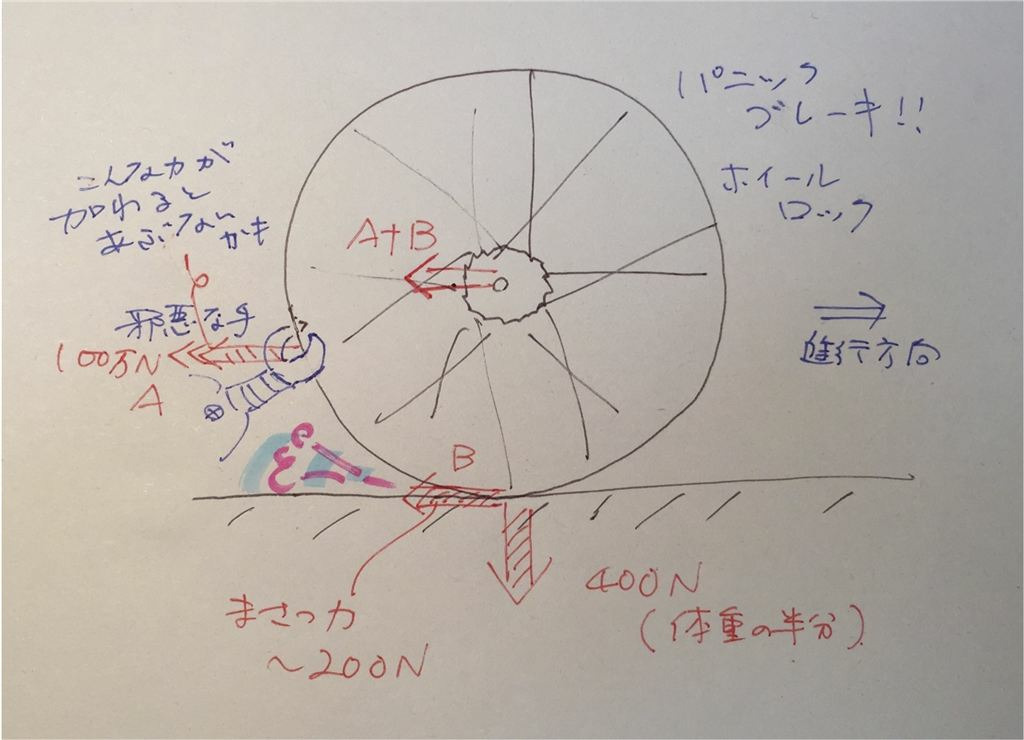 パニック
ブレーキ!!
ホイール
ロック
こんな力が
加わると
あぶない
かも
A+B
邪悪な手
100万N
A
進行方向
B
400N
(体重の半分)
まさつ力
〜200N